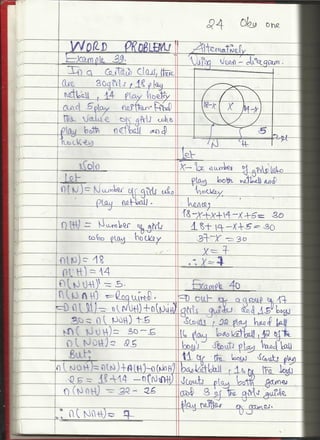 24 Okay one
WORD PROBLEMS
Example 39.
In a certain class, there
are 30 girls, 18 play
netball, 14 play hockey
and 5 play neither. Find
the value of girls who
play both netball and
hockey
Soln
Let
n(N) = Number of girls who
play netball.
n(H) = Number of girls
who play hockey
n(N) = 18
n(H) = 14
n(NUH)' = 5.
n(N∩H) = Required.
⇒ n(U) = n(NUH) + n(NUH)'
30 = n(NUH) + 5
n(NUH) = 30 - 5
n(NUH) = 25
But:
n(NUH) = n(N) + n(H) - n(N∩H)
25 = 18 + 14 - n(N∩H)
n(N∩H) = 32 - 25
∴ n(N∩H) = 7
Alternatively
Using venn - diagram.
18-x x 14-x
5
N H
Let
x - be number of girls who
play both netball and
hockey.
hence,
18 - x + x + 14 - x + 5 = 30
18 + 14 - x + 5 = 30
37 - x = 30
x = 7
∴ x = 7
Example 40.
⇒ Out of a group of 17
girls guides and 15 boys
scouts, 22 play hand ball
16 play basketball, 12 of the
boys scouts play hand ball
11 of the boys scouts play
basketball, 10 of the boys
scouts play both games
and 3 of the girls guide
play neither of games.